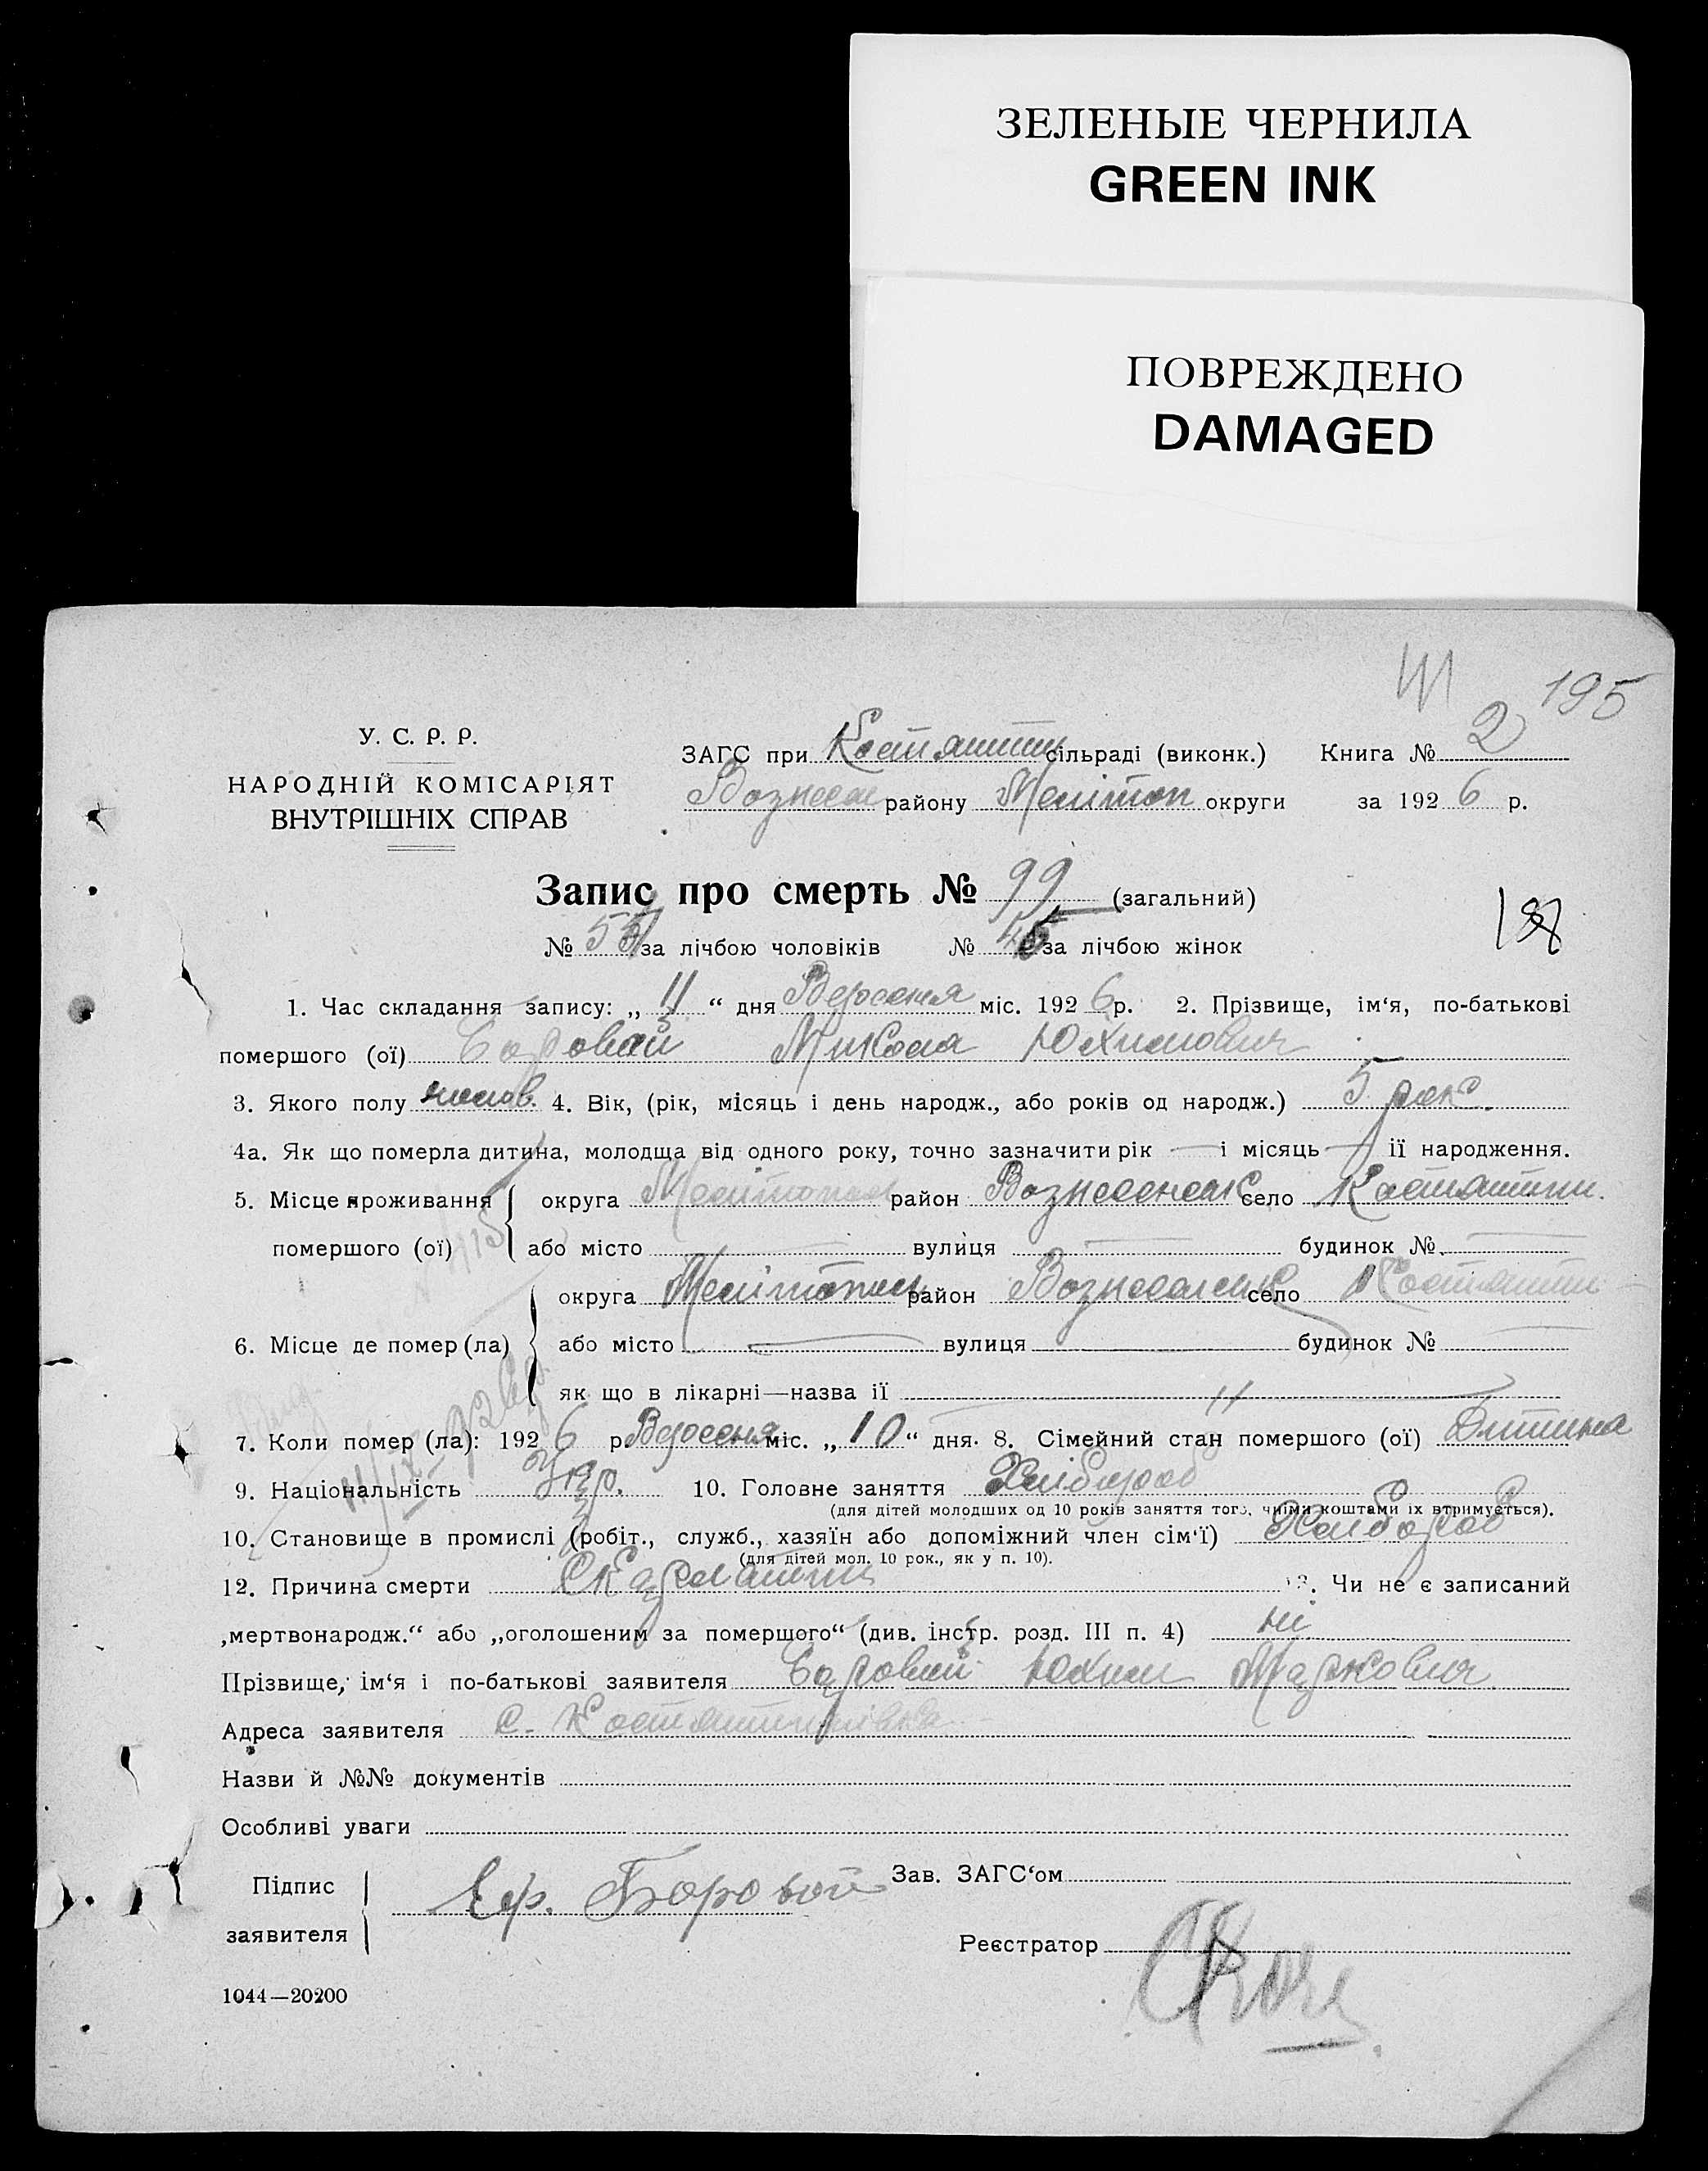 ЗЕЛЕНЫЕ ЧЕРНИЛА
GREEN INK
ПОВРЕЖДЕНО
DAMAGED
195
У. С. Р. Р.
НАРОДНІЙ КОМІСАРІЯТ
ВНУТРІШНІХ СПРАВ
ЗАГС при Костянтин сільраді (виконк.) Книга № 2
Вознесен району Меліноп округи за 1926 р.
Запис про смерть № 99 (загальний)
№ за лічбою чоловіків № 45 за лічбою жінок
1. Час складання запису: „ 11 “ дня Вересня міс. 1926 р. 2. Прізвище, ім‘я, по-батькові
помершого (ої) Боровий Микола Юхимович
3. Якого полу чолов. 4. Вік, (рік, місяць і день народж., або років од народж.) 5 рокі.
4а. Як що померла дитина, молодща від одного року, точно зазначити рік — і місяць — її народження.
5. Місце проживання округа район Вознесенськ село Костянтин.
помершого (ої) або місто — вулиця — будинок № —
округа район Вознесенськ село Костянтин
6. Місце де помер (ла) або місто — вулиця — будинок № —
як що в лікарні—назва її — " —
7. Коли помер (ла): 1926 р. Вересня міс. „ 10 “ дня. 8. Сімейний стан помершого (ої) Дитина
9. Національність Укр. 10. Головне заняття Хлібороб
(для дітей молодших од 10 років заняття того, чиїми коштами їх втримується).
10. Становище в промислі (робіт., служб., хазяїн або допоміжний член сім‘ї) Хлібороб
(для дітей мол. 10 рок., як у п. 10).
12. Причина смерти Скарлатина 13. Чи не є записаний
„мертвонародж.“ або „оголошеним за померщого“ (див. інстр. розд. III п. 4) ні
Прізвище, ім‘я і по-батькові заявителя Боровий Юхим Маркович
Адреса заявителя с. Костянтинівка
Назви й №№ документів
Особливі уваги
Підпис
заявителя Еф. Боровой
Зав. ЗАГС‘ом
Реєстратор
1044—20200